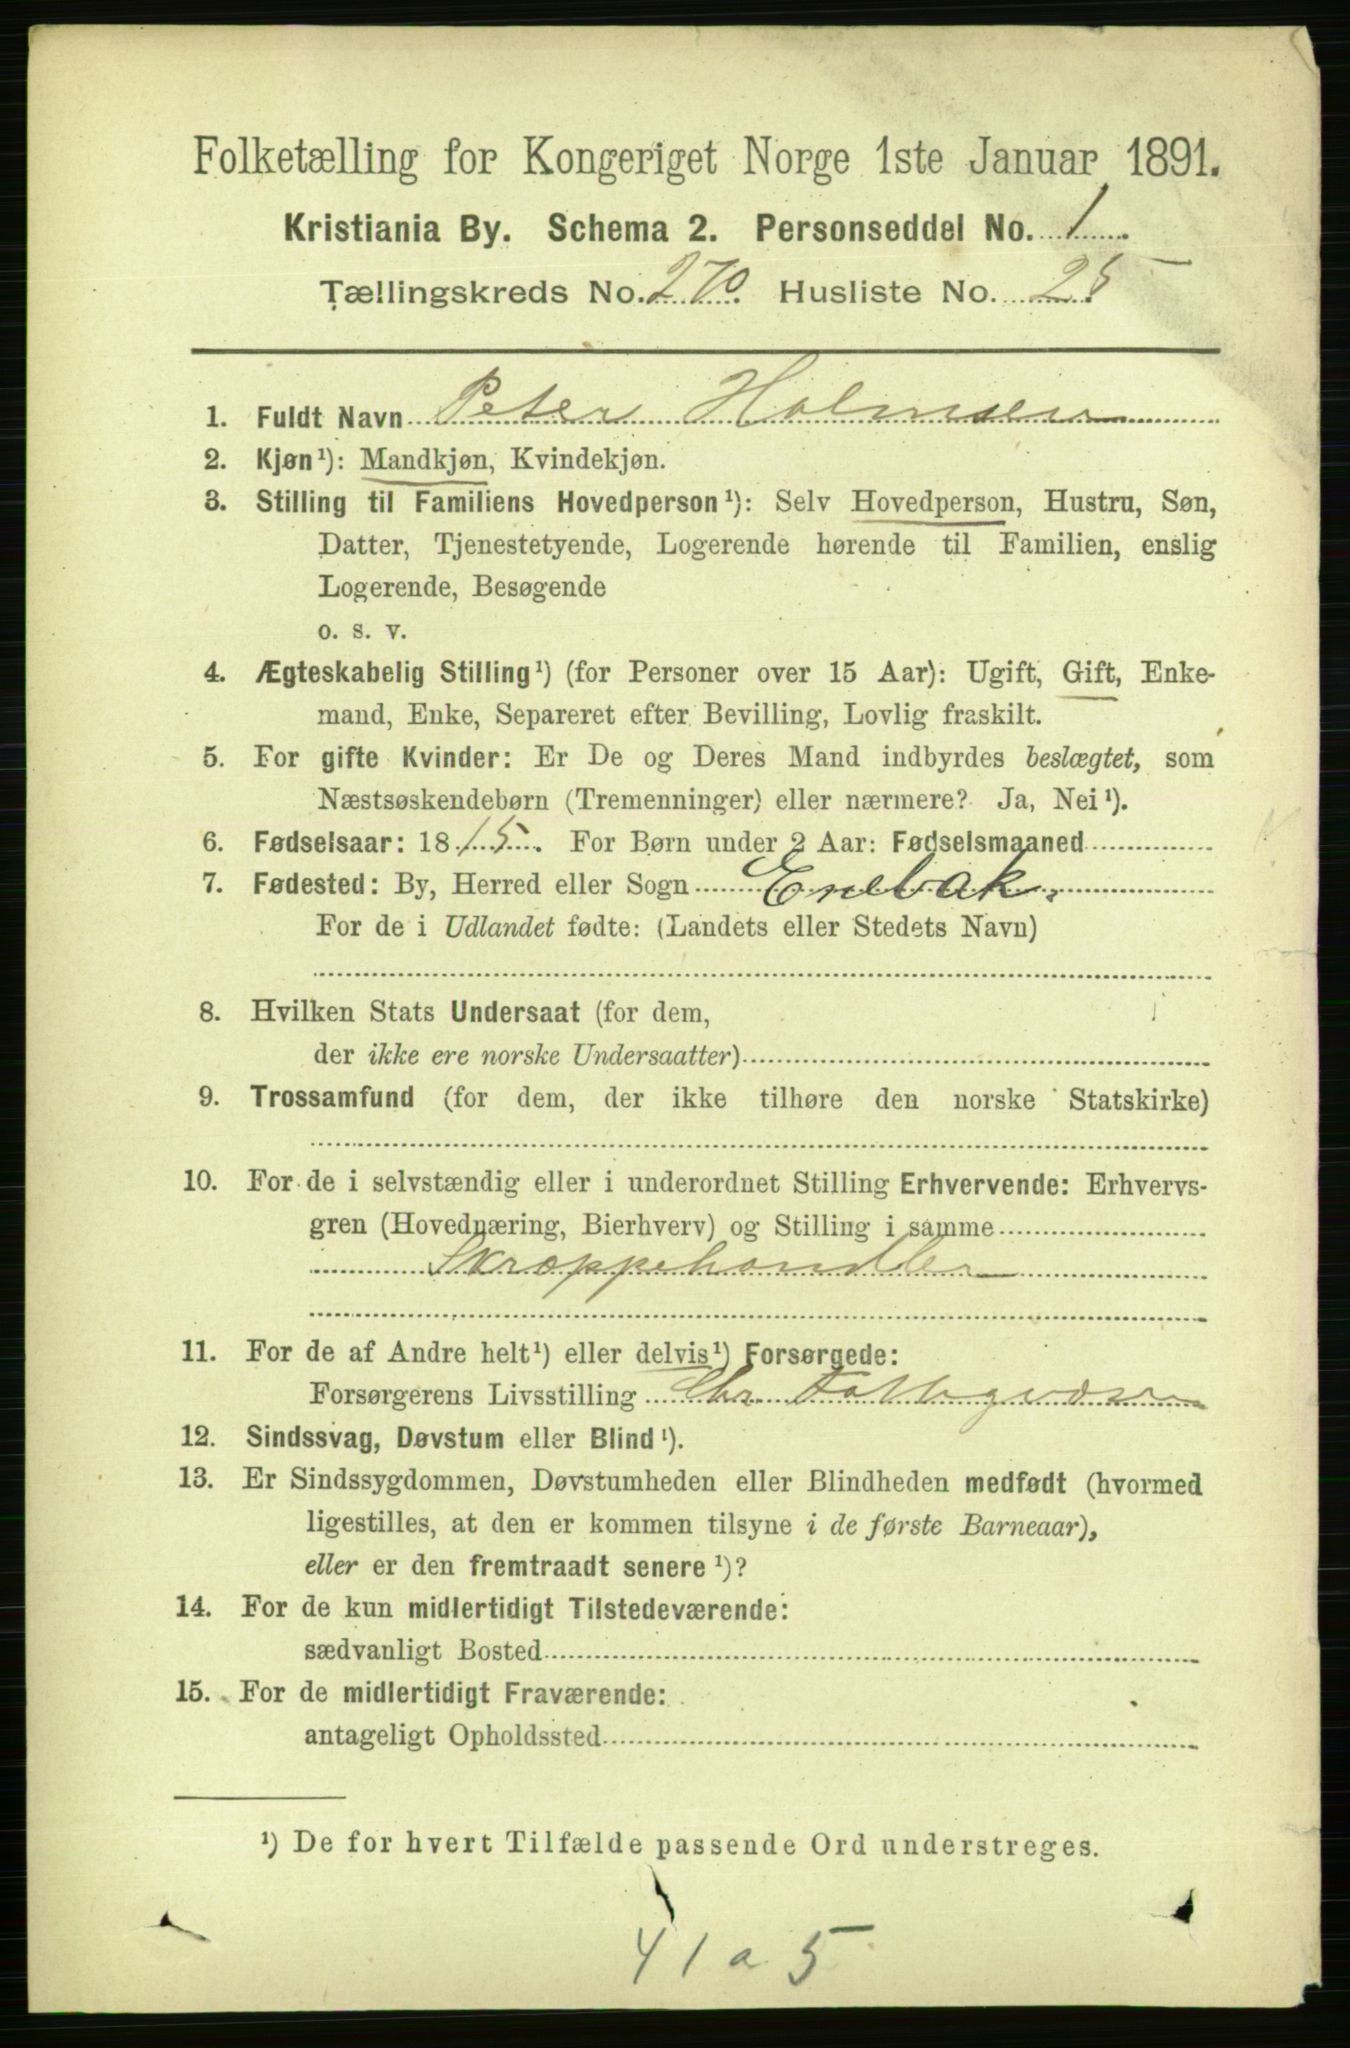 Folketælling for Kongeriget Norge 1ste Januar 1891.
Kristiania By. Schema 2. Personseddel No. 1.
Tællingskreds No. 270. Husliste No. 25
1. Fuldt Navn Peter Holmsen
2. Kjøn¹): Mandkjøn, Kvindekjøn.
3. Stilling til Familiens Hovedperson¹): Selv Hovedperson, Hustru, Søn,
Datter, Tjenestetyende, Logerende hørende til Familien, enslig
Logerende, Besøgende
o. s. v.
4. Ægteskabelig Stilling¹) (for Personer over 15 Aar): Ugift, Gift, Enke-
mand, Enke, Separeret efter Bevilling, Lovlig fraskilt.
5. For gifte Kvinder: Er De og Deres Mand indbyrdes beslægtet, som
Næstsøskendebørn (Tremenninger) eller nærmere? Ja, Nei¹).
6. Fødselsaar: 1815. For Børn under 2 Aar: Fødselsmaaned
7. Fødested: By, Herred eller Sogn Enebak.
For de i Udlandet fødte: (Landets eller Stedets Navn)
8. Hvilken Stats Undersaat (for dem,
der ikke ere norske Undersaatter)
9. Trossamfund (for dem, der ikke tilhøre den norske Statskirke)
10. For de i selvstændig eller i underordnet Stilling Erhvervende: Erhvervs-
gren (Hovednæring, Bierhverv) og Stilling i samme
Skræppehandler
11. For de af Andre helt¹) eller delvis¹) Forsørgede:
Forsørgerens Livsstilling Chr. Fattigvæsen
12. Sindssvag, Døvstum eller Blind¹).
13. Er Sindssygdommen, Døvstumheden eller Blindheden medfødt (hvormed
ligestilles, at den er kommen tilsyne i de første Barneaar),
eller er den fremtraadt senere¹)?
14. For de kun midlertidigt Tilstedeværende:
sædvanligt Bosted
15. For de midlertidigt Fraværende:
antageligt Opholdssted
¹) De for hvert Tilfælde passende Ord understreges.
41 a 5